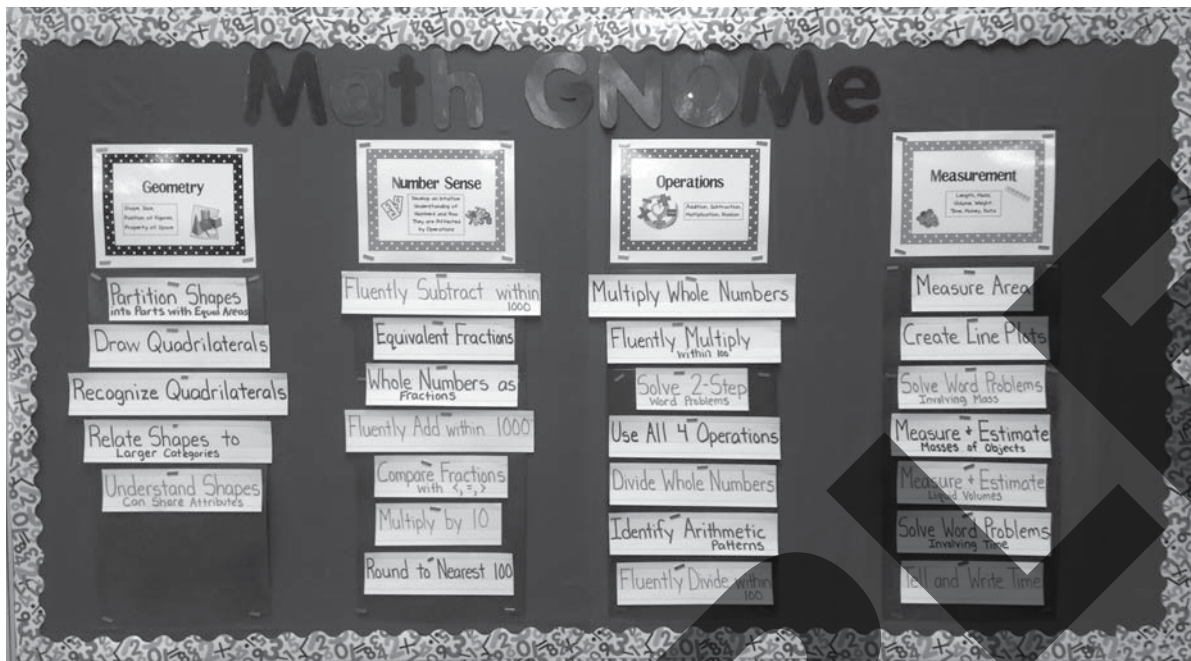 Math GNOMe
Geometry
Shape, Size,
Position of Figures,
Property of Space
Partition Shapes
into Parts with Equal Areas
Draw Quadrilaterals
Recognize Quadrilaterals
Relate Shapes to
Larger Categories
Understand Shapes
Can Share Attributes
Number Sense
Develop an Intuitive
Understanding of
Numbers and How
They are Affected
by Operations
Fluently Subtract within
1000
Equivalent Fractions
Whole Numbers as
Fractions
Fluently Add within 1000
Compare Fractions
with <, =, >
Multiply by 10
Round to Nearest 100
Operations
Addition, Subtraction,
Multiplication, Division
Multiply Whole Numbers
Fluently Multiply
within 100
Solve 2-Step
Word Problems
Use All 4 Operations
Divide Whole Numbers
Identify Arithmetic
Patterns
Fluently Divide within
100
Measurement
Length, Mass,
Volume, Weight
Time, Money, Data
Measure Area
Create Line Plots
Solve Word Problems
Involving Mass
Measure + Estimate
Masses of Objects
Measure + Estimate
Liquid Volumes
Solve Word Problems
Involving Time
Tell and Write Time